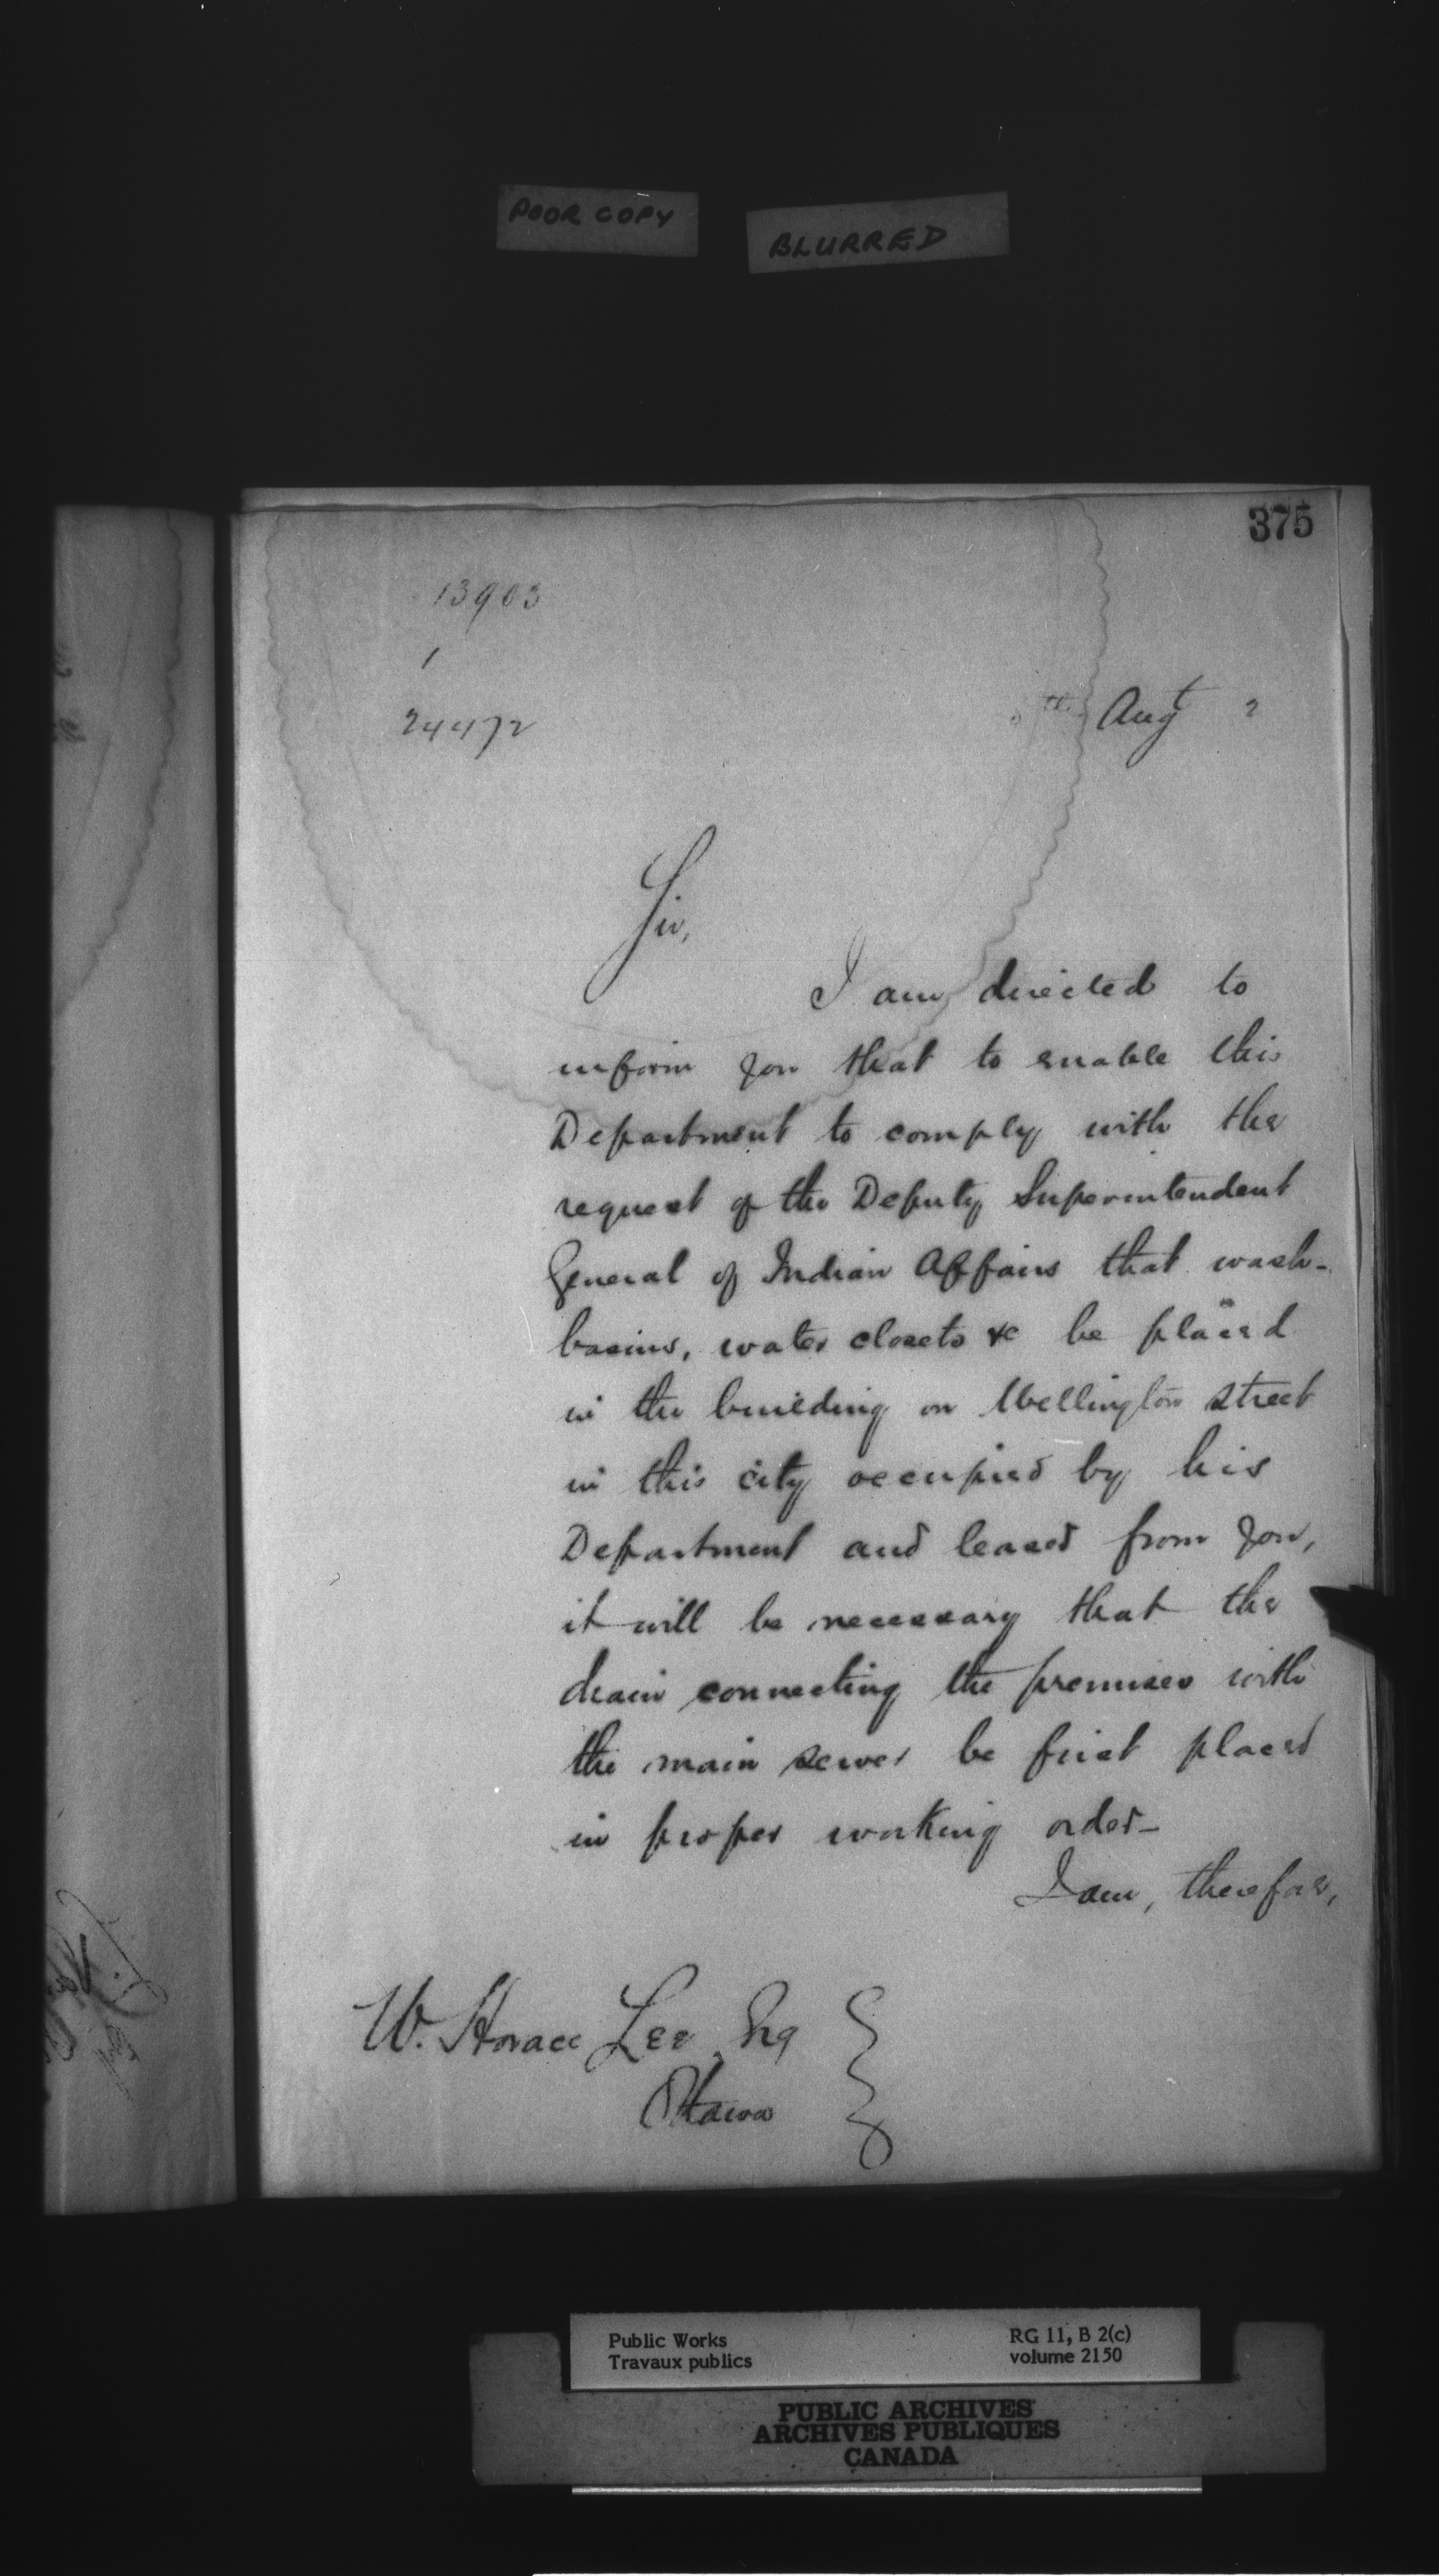 POOR COPY
BLURRED
375
13903
1
24472
th Augt 2
Sir,
I am directed to
inform you that to enable this
Department to comply with the
request of the Deputy Superintendent
General of Indian Affairs that wash-
basins, water closets &c be placed
in the building on Wellington Street
in this city occupied by his
Department and leased from you,
it will be necessary that the
drain connecting the premises with
the main sewer be first placed
in proper working order-
I am, therefore,
W. Horace Lee, Esq
Ottawa
Public Works
Travaux publics
RG 11, B 2(c)
volume 2150
PUBLIC ARCHIVES
ARCHIVES PUBLIQUES
CANADA